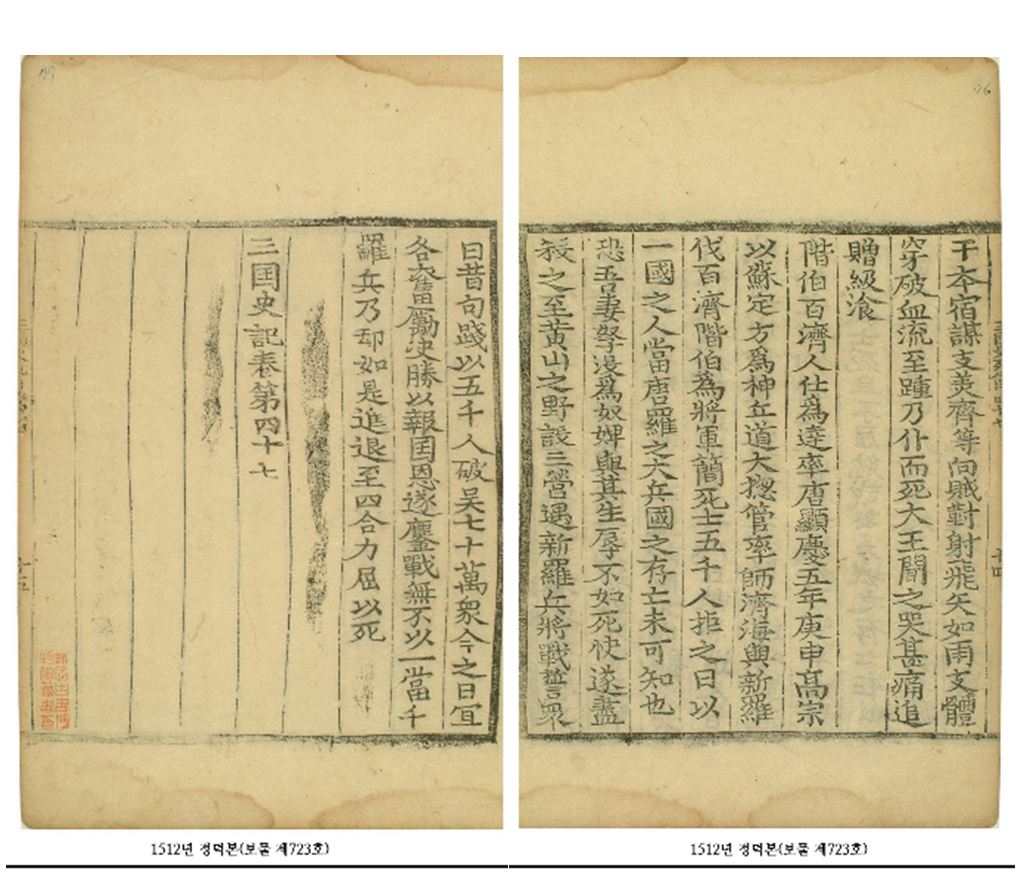 干本宿謀支羙齊等向賊對射飛矢如雨支體
穿破血流至踵乃仆而死大王聞之哭甚痛追
贈級湌
階伯百濟人仕爲達率唐顯慶五年庚申髙宗
以蘇定方爲神丘道大揔管率師濟海與新羅
伐百濟階伯爲將軍簡死士五千人拒之曰以
一國之人當唐羅之大兵國之存亡未可知也
恐吾妻孥没爲奴婢與其生辱不如死快遂盡
殺之至黄山之野設三營遇新羅兵將戰誓衆
1512년 정덕본(보물 제723호)
曰昔句踐以五千人破吴七十萬衆今之日宜
各奮勵決勝以報囯恩遂鏖戰無不以一當千
羅兵乃却如是進退至四合力屈以死
三囯史記卷第四十七
1512년 정덕본(보물 제723호)